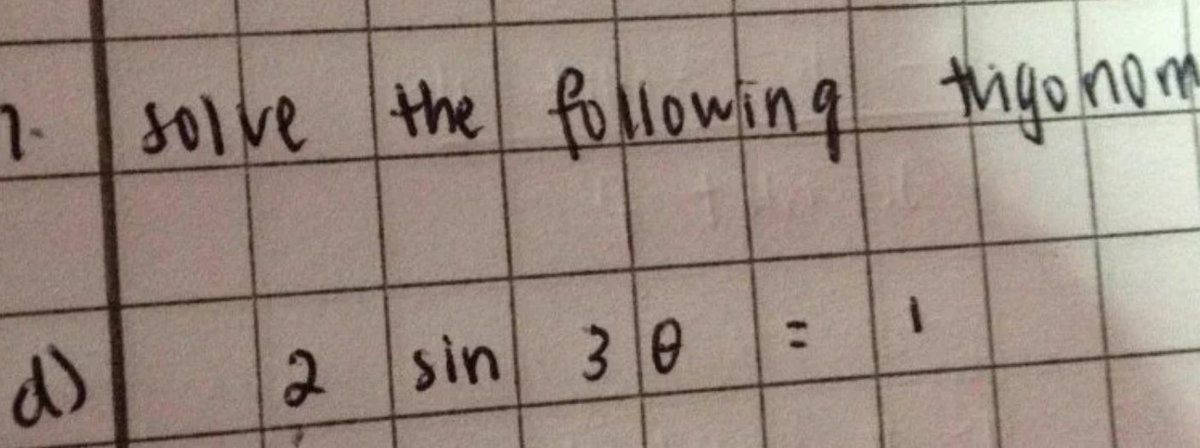 7. solve the following trigonom
d) 2 sin 3 θ = 1